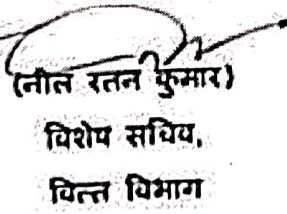 (नील रतन कुमार)
विशेष सचिव,
वित्त विभाग